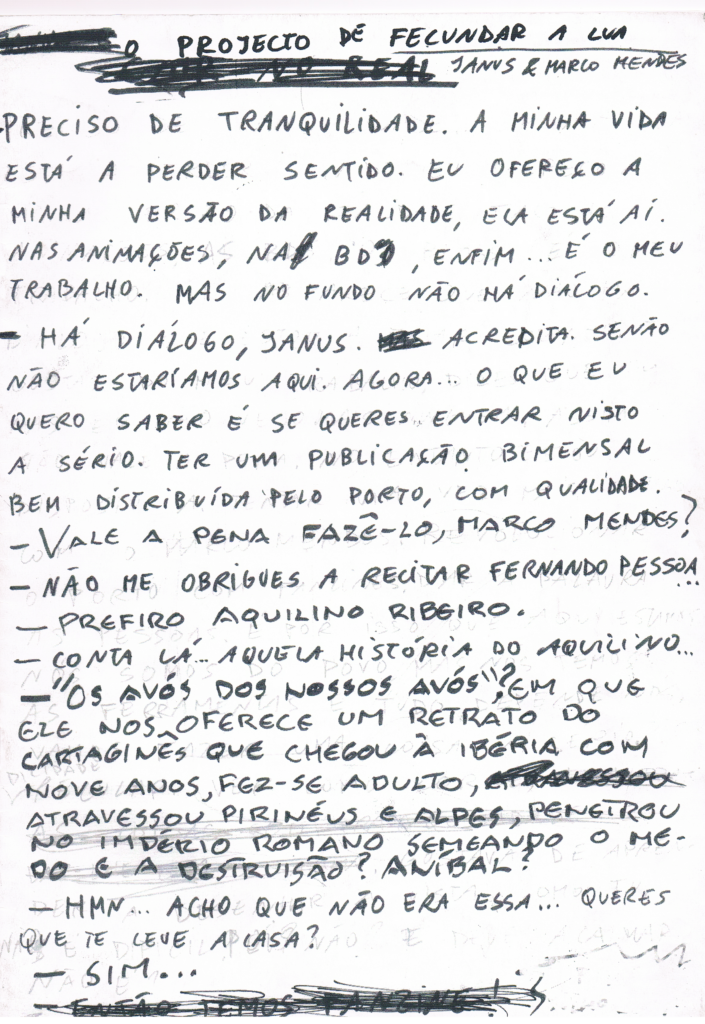 O PROJECTO DE FECUNDAR A LUA
JANUS & MARCO MENDES
PRECISO DE TRANQUILIDADE. A MINHA VIDA
ESTÁ A PERDER SENTIDO. EU OFEREÇO A
MINHA VERSÃO DA REALIDADE, ELA ESTÁ AÍ.
NAS ANIMAÇÕES, NA BD, ENFIM... É O MEU
TRABALHO. MAS NO FUNDO NÃO HÁ DIÁLOGO.
- HÁ DIÁLOGO, JANUS. ACREDITA. SENÃO
NÃO ESTARÍAMOS AQUI. AGORA... O QUE EU
QUERO SABER É SE QUERES ENTRAR NISTO
A SÉRIO. TER UMA PUBLICAÇÃO BIMENSAL
BEM DISTRIBUÍDA PELO PORTO, COM QUALIDADE.
- VALE A PENA FAZÊ-LO, MARCO MENDES?
- NÃO ME OBRIGUES A RECITAR FERNANDO PESSOA...
- PREFIRO AQUILINO RIBEIRO.
- CONTA LÁ... AQUELA HISTÓRIA DO AQUILINO...
- "OS AVÓS DOS NOSSOS AVÓS"? EM QUE
ELE NOS OFERECE UM RETRATO DO
CARTAGINÊS QUE CHEGOU À IBÉRIA COM
NOVE ANOS, FEZ-SE ADULTO,
ATRAVESSOU PIRINÉUS E ALPES, PENETROU
NO IMPÉRIO ROMANO SEMEANDO O ME-
DO E A DESTRUIÇÃO? ANÍBAL?
- HMN... ACHO QUE NÃO ERA ESSA... QUERES
QUE TE LEVE A CASA?
- SIM...
- ENTÃO TEMOS FANZINE!